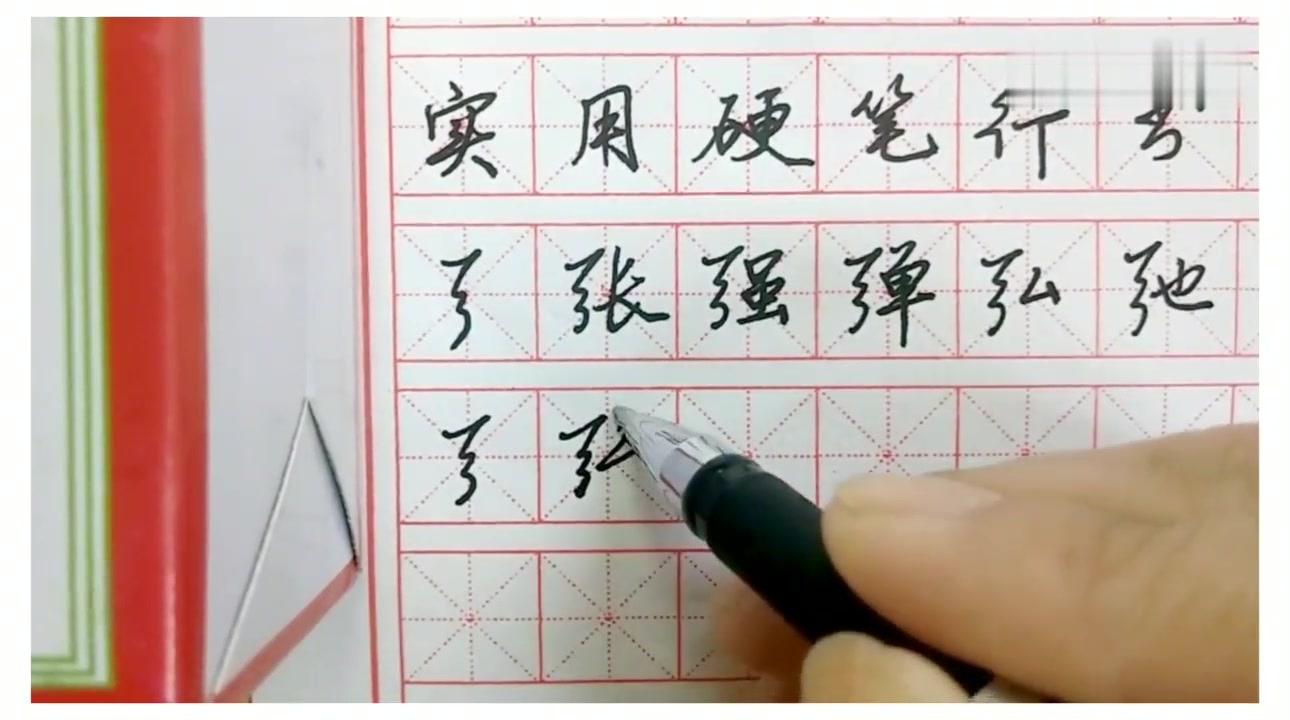 实用硬笔行书
弓张强弹弘弛
弓